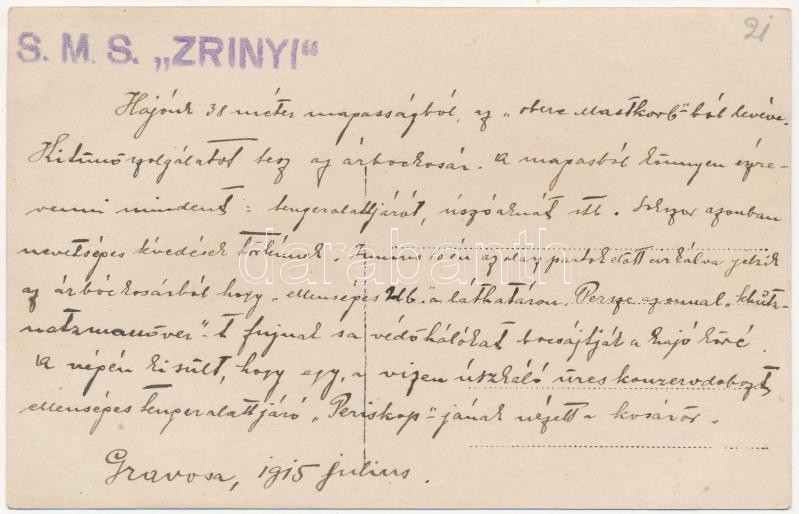 21
S. M. S. „ZRINYI“
Hajónk 38 méter magasságból, az „obere Mastkorb"-ból levéve.
Kitünő szolgálatot tesz az árbockosár. A magasból könnyen észre-
venni mindent: tengeralattjárót, úszóaknát stb. Sokszor azonban
nevetséges tévedések történnek. Junius 10 én az olasz partok előtt cirkálva jelzik
az árbóckosárból hogy „ellenséges Ub." a láthatáron. Persze azonnal „Schutz-
netzmanöver"-t fujnak s a védőhálókat bocsájtják a hajó köré.
A végén kisült, hogy egy, a vizen úszkáló üres konzervdobozt,
ellenséges tengeralattjáró „Periskop"-jának nézett a kosárőr.
Gravosa, 1915 julius.
darabanth